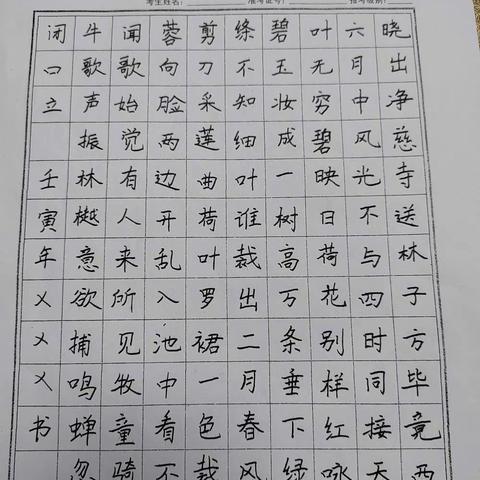 考生姓名: 准考证号: 报考级别:
晓出净慈寺送林子方毕竟西
六月中风光不与四时同接天
叶无穷碧映日荷花别样红咏
碧玉妆成一树高万条垂下绿
绦不知细叶谁裁出二月春风
剪刀采莲曲荷叶罗裙一色裁
蓉向脸两边开乱入池中看不
闻歌始觉有人来所见牧童骑
牛歌声振林樾意欲捕鸣蝉忽
闭口立 壬寅年㐅㐅㐅书